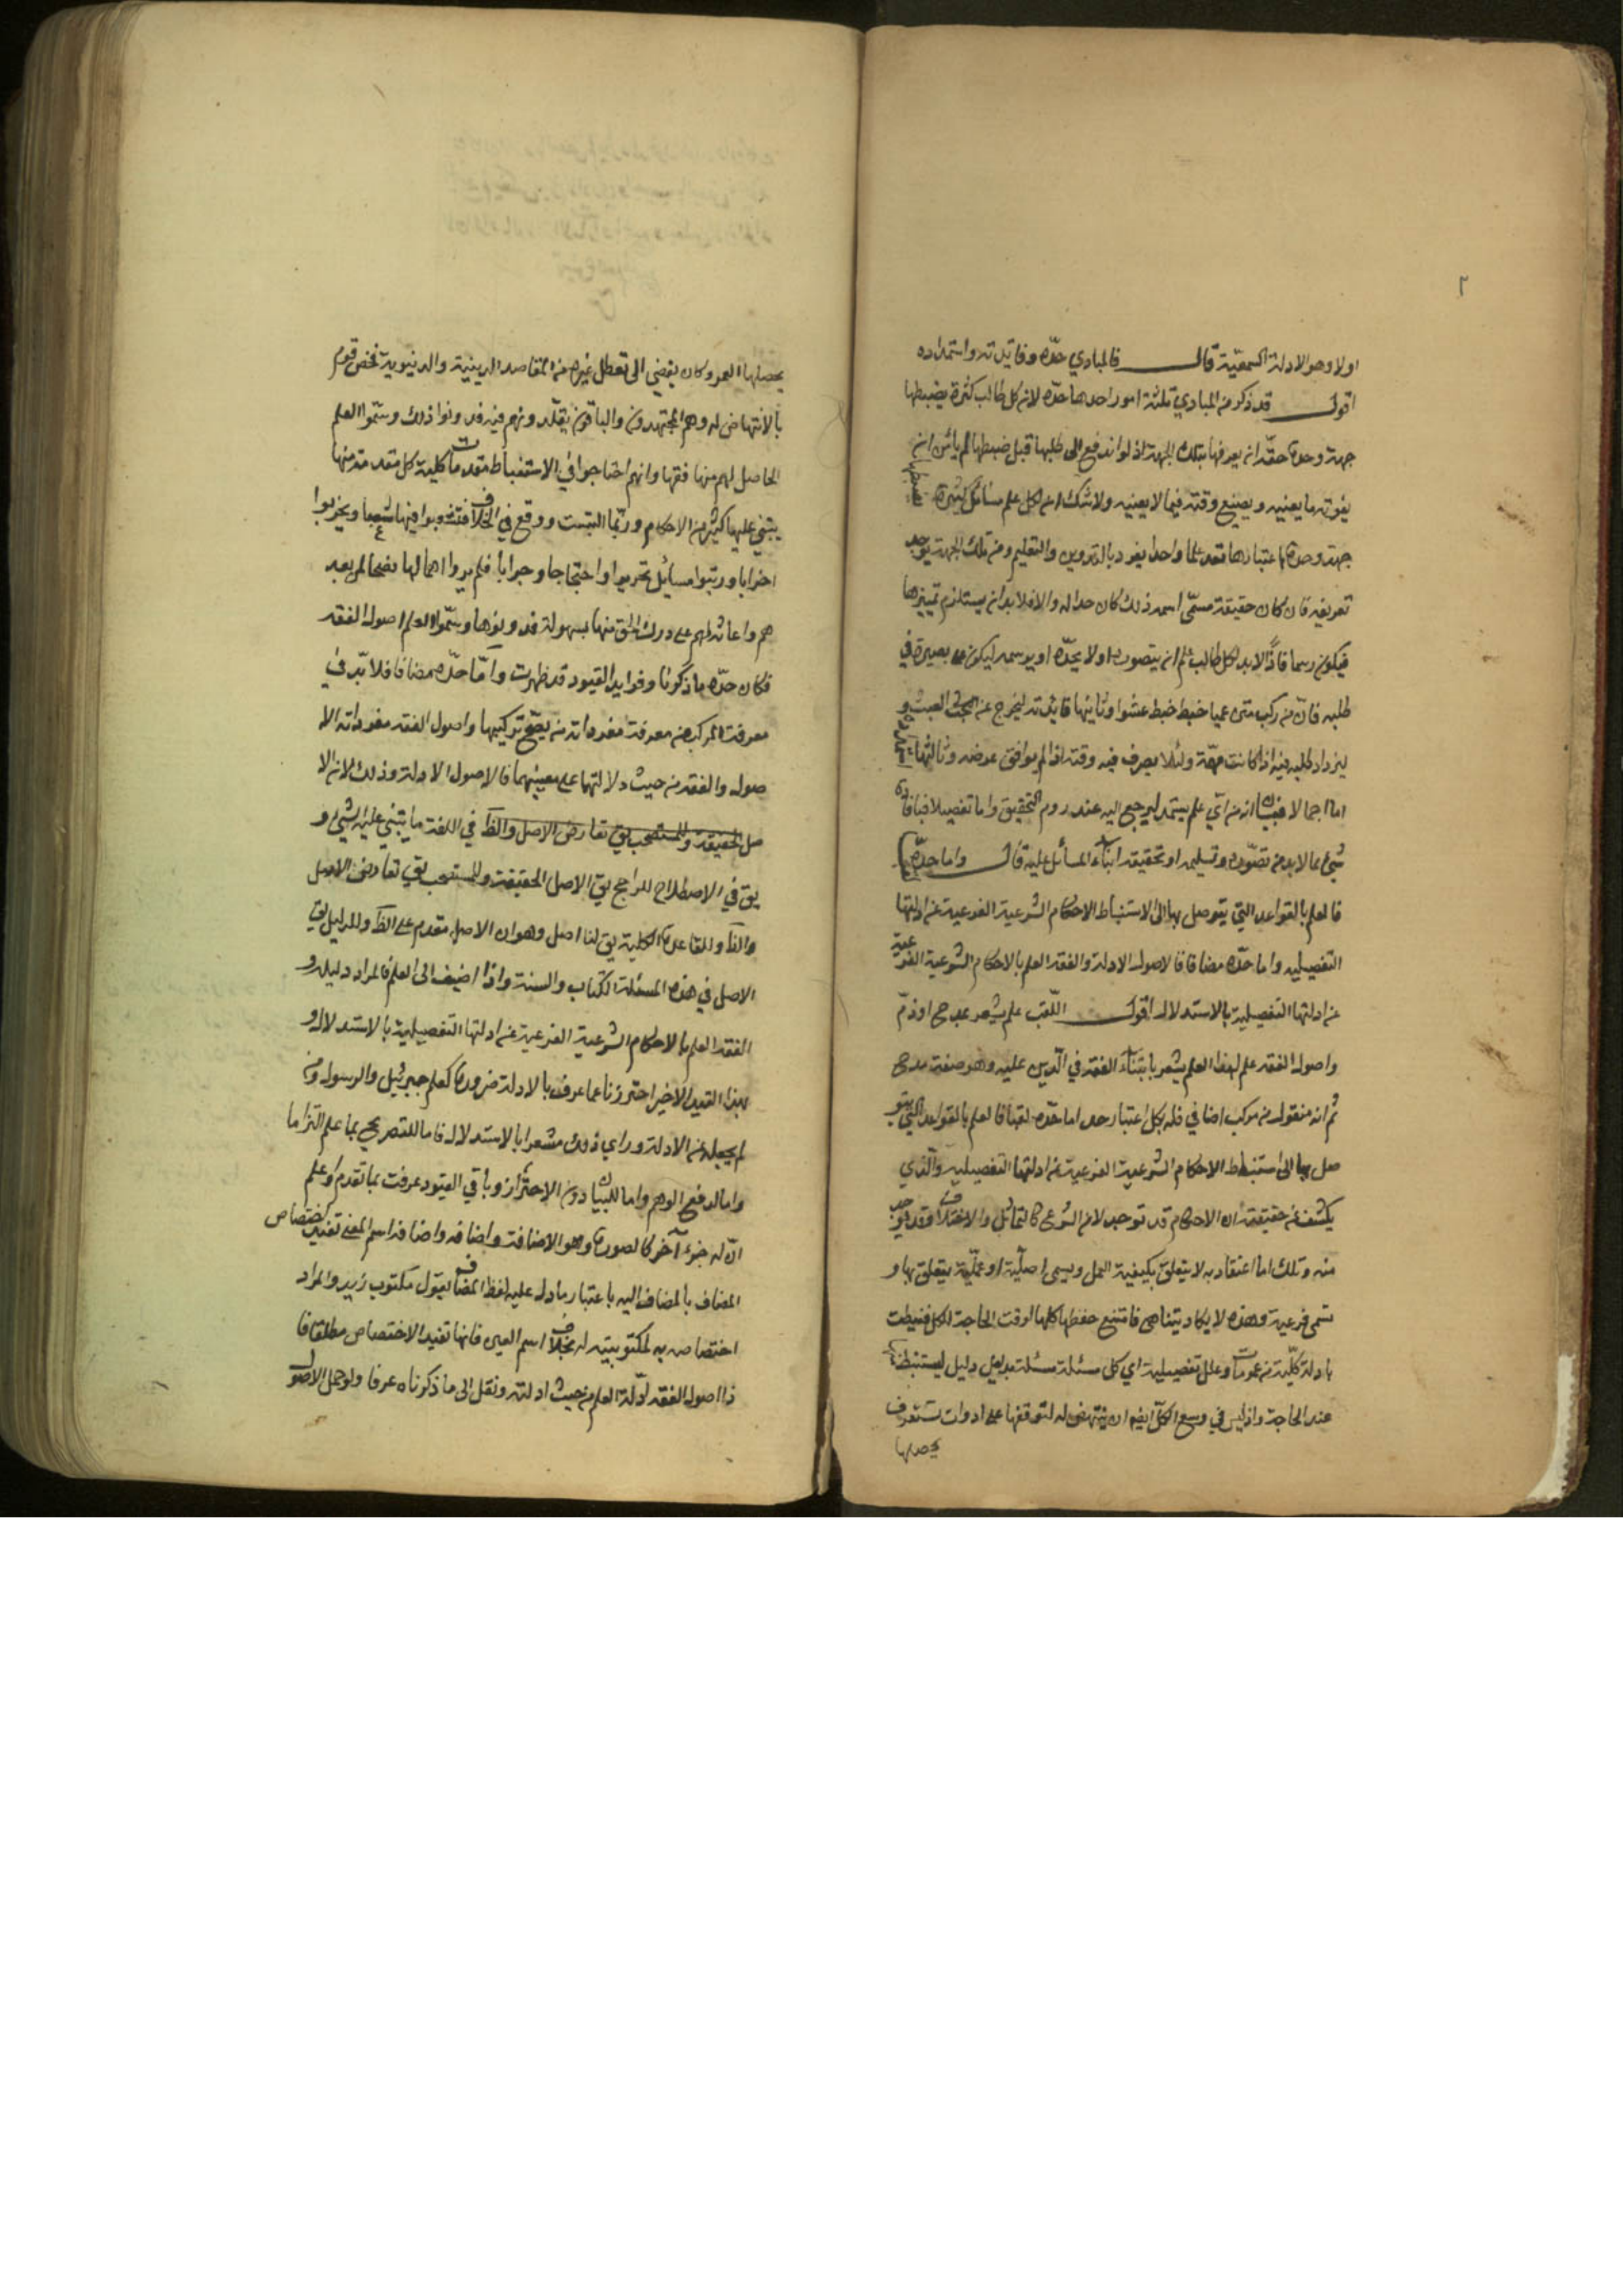 ٢
اولا وهو الادلة السمعية قال فالمبادي حدّه وفايدته واستمداده
اقول قد ذكر من المبادي ثلثة امور احدها حدّه لان كل طالب كثرة يضبطها
جهة وحدة حقّه ان يعرفها بتلك الجهة اذ لو اندفع الى طلبها قبل ضبطها لم يأمن ان
يفوته ما يعنيه ويضيع وقته فيما لا يعنيه ولا شك ان لكل علم مسائل كثيرة تضبطها
جهة وحدة باعتبارها تعد علما واحدا يفرد بالتدوين والتعليم ومن تلك الجهة يوخذ
تعريفه فان كان حقيقة مسمّى اسمه ذلك كان حدا له والا فلا بد ان يستلزم تمييزها
فيكون رسما فاذًا لا بد لكل طالب علم ان يتصوره اولا بحدّه او برسمه ليكون على بصيرة في
طلبه فانّ من ركب متن عميا خبط خبط عشوا وثانيها فائدته ليخرج عن العبث و
ليزداد طلبه فيه اذا كانت مهمّة ولئلا يصرف فيه وقته اذا لم يوافق غرضه وثالثها استمداده
اما اجمالا فببيان انه من اي علم يستمد ليرجع اليه عند روم التحقيق واما تفصيلا فبافادة
شئ مما لا بد من تصوّره وتسليمه او تحقيقه لبناء المسائل عليه قال واما حدّه
فالعلم بالقواعد التي يتوصل بها الى استنباط الاحكام الشرعية الفرعية عن ادلتها
التفصيليه واما حدّه مضافا فالاصول الادلة والفقه العلم بالاحكام الشرعية الفرعية
عن ادلتها التفصيلية بالاستدلال اقول اللّقب علم يشعر بمدح او ذمّ
واصول الفقه علم لهذا العلم يشعر بابتناء الفقه في الّدين عليه وهو صفة مدح
ثم انه منقول من مركب اضافي فله بكل اعتبار حد اما حدّه لقبا فالعلم بالقواعد التي يتو
صل بها الى استنباط الاحكام الشرعية الفرعية عن ادلتها التفصيليه والّذي
يكشف عن حقيقته ان الاحكام قد توخذ لا من الشرع كالتماثل والاختلاف وقد توخذ
منه وتلك اما اعتقاديه لا يتعلق بكيفية العمل ويسمى اصلّية او عمليّة يتعلق بها و
تسمى فرعية وهذه لا يكاد يتناهى فامتنع حفظها كلها لوقت الحاجة للكل فنيطت
بادلة كليّة من عمومات وعلل تفصيلية اي كل مسئلة مسئلة بدليل دليل ليستنبط منها
عند الحاجة واذ ليس في وسع الكلّ ايضا ان ينتهض له لتوقفها على ادوات تستغرق
تحصيلها
تحصيلها العمر وكان يفضى الى تعطل غيره من المقاصد الدينية والدنيوية فخص قوم
بالانتهاض له وهم المجتهدون والباقون يقلّدونهم فيه فدونوا ذلك وسمّوا العلم
الحاصل لهم منها فقها وانهم احتاجوا في الاستنباط الى مقدمات كلية كل مقدمة منها
يبتني عليها كثير من الاحكام وربّما التبست ووقع في الخلاف فتشعبوا فيها شعبا وتحزبوا
احزابا ورتبوا مسائل تحريرا واحتجاجا وجوابا فلم يروا اهمالها نصحا لمن بعد
هم واعانة لهم على درك الحق منها بسهولة فدونوها وسمّوا العلم اصول الفقه
فكان حدّه ما ذكرنا وفوايد القيود قد ظهرت وامّا حدّه مضافا فلا بدّ في
معرفة المركب من معرفة مفرداته من حيث يصّح تركيبها واصول الفقه مفرداته الا
صول والفقه من حيث دلالتها على معنييهما فالاصول الادلة وذلك لان الا
صل في اللغة ما يبتني عليه الشئ و
يق في الاصطلاح للراجح يق الاصل الحقيقة وللمستصحب يق تعارض الاصل
والظ وللقاعدة الكلية يق لنا اصل وهو ان الاصل مقدم على الظ وللدليل يق
الاصل في هذه المسئلة الكتاب والسنة واذا اضيف الى العلم فالمراد دليله و
الفقه العلم بالاحكام الشرعية الفرعية عن ادلتها التفصيلية بالاستدلال و
بهذا القيد الاخير احترزنا عما عرف بالادلة ضرورة كعلم جبرئيل والرسول ومن
لم يجعله عن الادلة وراي ذلك مشعرا بالاستدلال فاما للتصريح بما علم التزاما
واما لدفع الوهم واما للبيان دون الاحتراز وباقي القيود عرفت بما تقدم وعلم
انّ له جزءً آخر كالصورة وهو الاضافة واضافة اسم المعنى تفيد اختصاص
المضاف بالمضاف اليه باعتبار ما دل عليه لفظ المضاف يقول مكتوب زيد والمراد
اختصاصه به لمكتوبيته له بخلاف اسم العين فانها تفيد الاختصاص مطلقا فا
ذا اصول الفقه ادلّة العلم من حيث ادلته ونقل الى ما ذكرناه عرفا ولو حمل الاصول